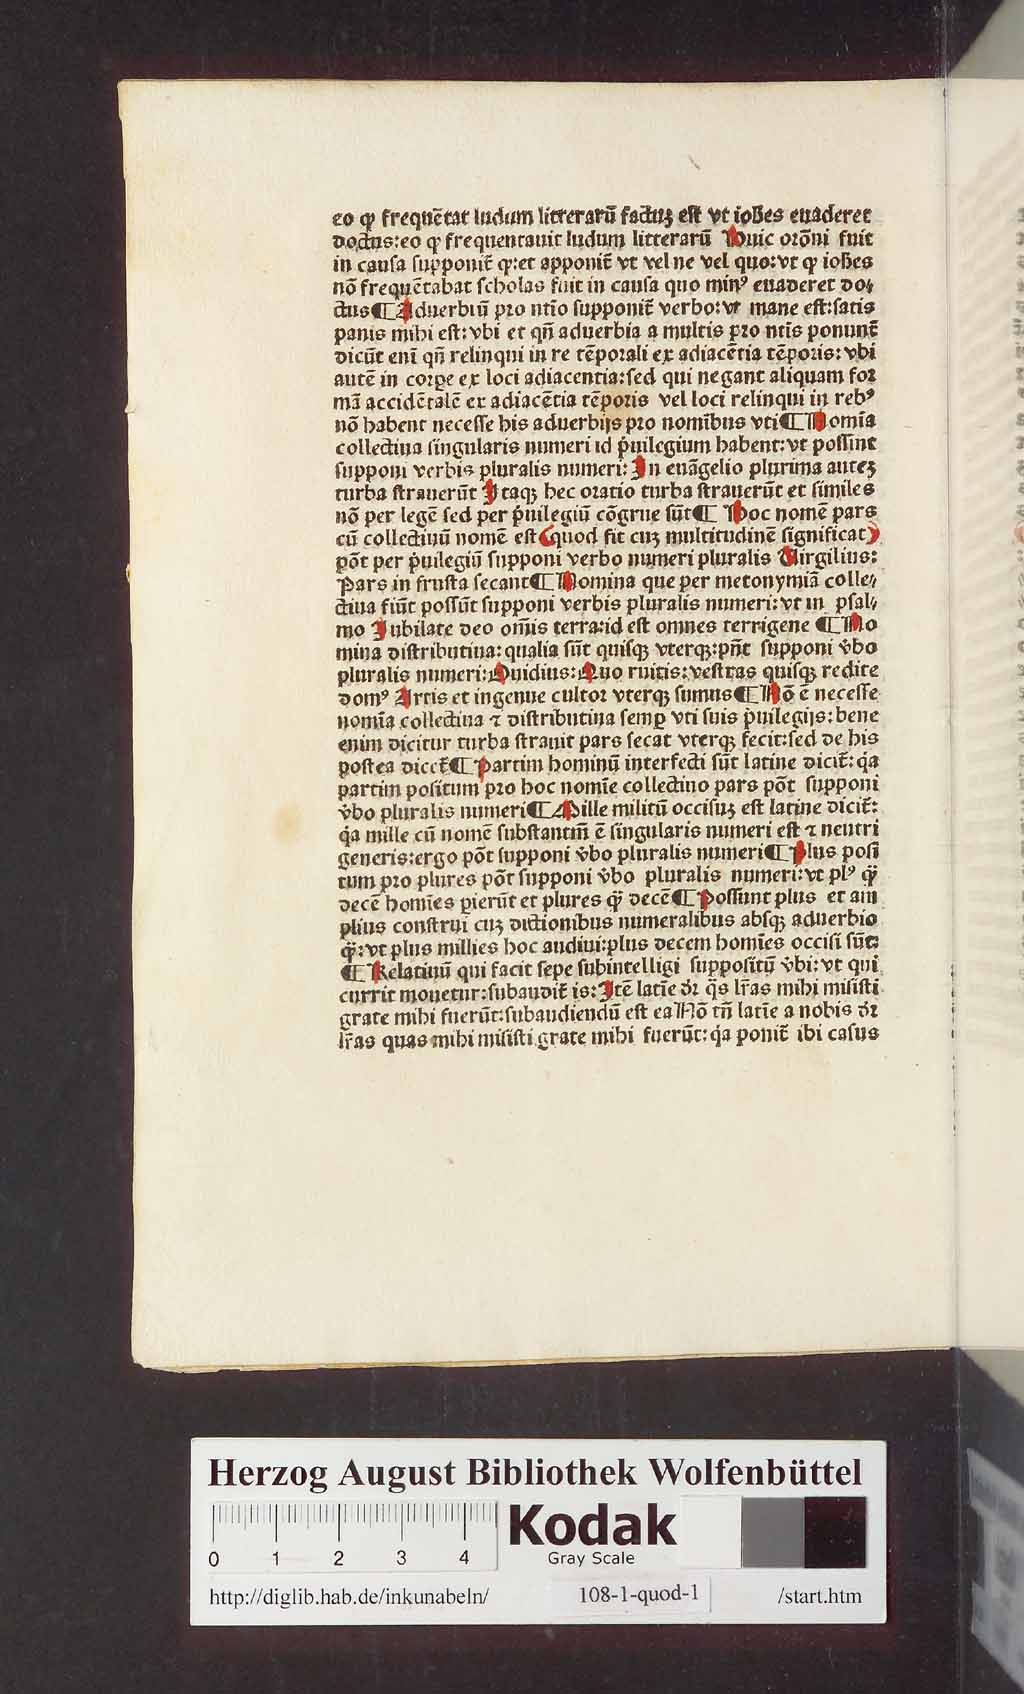 eo ꝙ frequētat ludum litterarū factuꝫ est vt ioħes euaderet
doctus:eo ꝙ frequentauit ludum litterarū Huic orōni fuit
in causa supponit̄ ꝙ:et apponit̄ vt vel ne vel quo:vt ꝙ ioħes
nō frequētabat scholas fuit in causa quo minꝰ euaderet do⸗
ctus¶Aduerbiū pro ntio supponit̄ verbo:vt mane est:satis
panis mihi est:vbi et qn̄ aduerbia a multis pro ntis ponunt̄
dicūt eni qn̄ relinqui in re tēporali ex adiacētia tēporis:vbi
autē in corpe ex loci adiacentia:sed qui negant aliquam for
mā accidētalē ex adiacētia tēporis vel loci relinqui in rebꝰ
nō habent necesse his aduerbijs pro nomībus vti¶Nomīa
collectiua singularis numeri id p̍uilegium habent:vt possint
supponi verbis pluralis numeri:In euāgelio plurima auteꝫ
turba strauerūt Itaqꝫ hec oratio turba strauerūt et similes
nō per legē sed per p̍uilegiū cōgrue sūt¶Hoc nomē pars
cū collectiuū nomē est(quod fit cuꝫ multitudinē significat)
pōt per p̍uilegiū supponi verbo numeri pluralis Virgilius:
Pars in frusta secant¶Nomina que per metonymiā colle⸗
ctiua fiūt possūt supponi verbis pluralis numeri:vt in psal⸗
mo Iubilate deo om̄is terra:id est omnes terrigene ¶No
mina distributiua:qualia sūt quisqꝫ vterqꝫ:pn̄t supponi v̍bo
pluralis numeri:Ouidius:Quo ruitis:vestras quisqꝫ redite
domꝰ Artis et ingenue cultor vterqꝫ sumus¶Nō ē necesse
nomīa collectiua ⁊ distributiua semꝑ vti suis p̍uilegijs:bene
enim dicitur turba strauit pars secat vterqꝫ fecit:sed de his
postea dicet̄¶Partim hominū interfecti sūt latine dicit̄:q̍a
partim positum pro hoc nomīe collectiuo pars pōt supponi
v̍bo pluralis numeri¶Mille militū occisuꝫ est latine dicit̄:
q̍a mille cū nomē substantiū ē singularis numeri est ⁊ neutri
generis:ergo pōt supponi v̍bo pluralis numeri¶Plus posi
tum pro plures pōt supponi v̍bo pluralis numeri:vt plꝰ q̄
decē homīes pierūt et plures q̄ decē¶Possunt plus et am
plius construi cuꝫ dictionibus numeralibus absqꝫ aduerbio
q̄:vt plus millies hoc audiui:plus decem homīes occisi sūt:
¶Relatiuū qui facit sepe subintelligi suppositū v̍bi:vt qui
currit mouetur:subaudit̄ is:Itē latīe dr̄ q̍s lr̄as mihi misisti
grate mihi fuerūt:subaudiendū est ea Nō tn̄ latīe a nobis dr̄
lr̄as quas mihi misisti grate mihi fuerūt:q̍a ponit̄ ibi casus
Herzog August Bibliothek Wolfenbüttel
0 1 2 3 4
Kodak
Gray Scale
http://diglib.hab.de/inkunabeln/ 108-1-quod-1 /start.htm